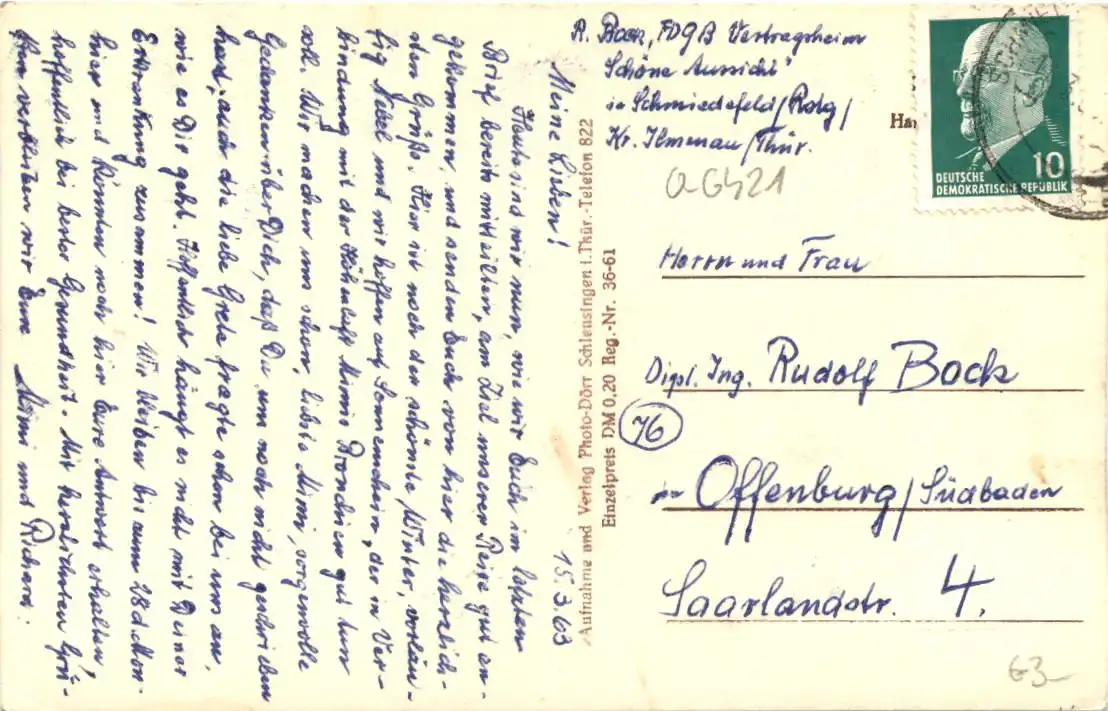 R. Bock, FDGB Vertragsheim
"Schöne Aussicht"
in Schmiedefeld/Rstg/
Kr. Ilmenau/Thür.
a 6421
15.3.63
Meine Lieben!
Heute sind wir nun, wie wir Euch im letzten
Brief bereits mitteilten, am Ziel unserer Reise gut an-
gekommen, und senden Euch von hier die herzlich-
sten Grüße. Hier ist noch der schönste Winter, vorläu-
fig Nebel und wir hoffen auf Sonnenschein, der in Ver-
bindung mit der Höhenluft Mimis Bronchien gut tun
soll. Wir machen uns schon, liebste Mimi, sorgenvolle
Gedanken über Dich, daß Du uns noch nicht geschrieben
hast, auch die liebe Grete fragte schon bei uns an,
wie es Dir geht. Hoffentlich hängt es nicht mit Deiner
Erkrankung zusammen! Wir bleiben bis zum 28. d. Mon.
hier und könnten noch hier Eure Antwort erhalten,
hoffentlich bei bester Gesundheit. Mit herzlichsten Grü-
ßen verbleiben wir Eure Mimi und Richard.
Aufnahme und Verlag Photo-Dörr Schleusingen i.Thür.-Telefon 822
Einzelpreis DM 0,20 Reg.-Nr. 36-61
10
DEUTSCHE
DEMOKRATISCHE REPUBLIK
Herrn und Frau
Dipl. Ing. Rudolf Bock
76
in Offenburg/Südbaden
Saarlandstr. 4.
63-